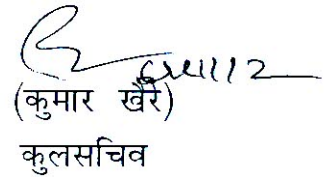 (कुमार खैरे)
कुलसचिव